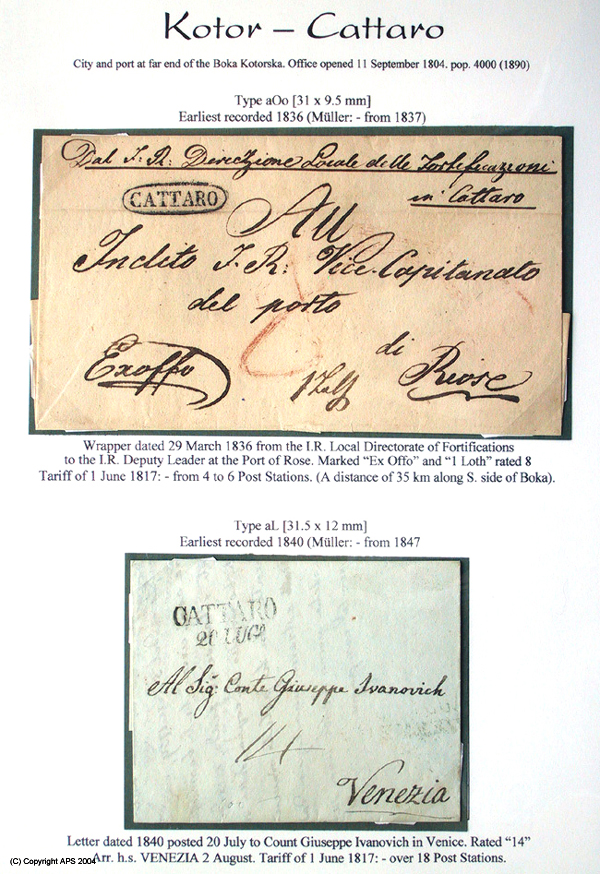 Kotor – Cattaro
City and port at far end of the Boka Kotorska. Office opened 11 September 1804. pop. 4000 (1890)
Type aOo [31 x 9.5 mm]
Earliest recorded 1836 (Müller: - from 1837)
Dal I: R: Direczione Locale delle Fortificazzioni
in Cattaro
CATTARO
All
Inclito I. R: Vice-Capitanato
del porto
di
Exoffo
Rose
Wrapper dated 29 March 1836 from the I.R. Local Directorate of Fortifications
to the I.R. Deputy Leader at the Port of Rose. Marked “Ex Offo” and “1 Loth” rated 8
Tariff of 1 June 1817: - from 4 to 6 Post Stations. (A distance of 35 km along S. side of Boka).
Type aL [31.5 x 12 mm]
Earliest recorded 1840 (Müller: - from 1847
CATTARO
20 LUG
Al Sig: Conte Giuseppe Ivanovich
14
Venezia
Letter dated 1840 posted 20 July to Count Giuseppe Ivanovich in Venice. Rated “14”
Arr. h.s. VENEZIA 2 August. Tariff of 1 June 1817: - over 18 Post Stations.
(C) Copyright APS 2004